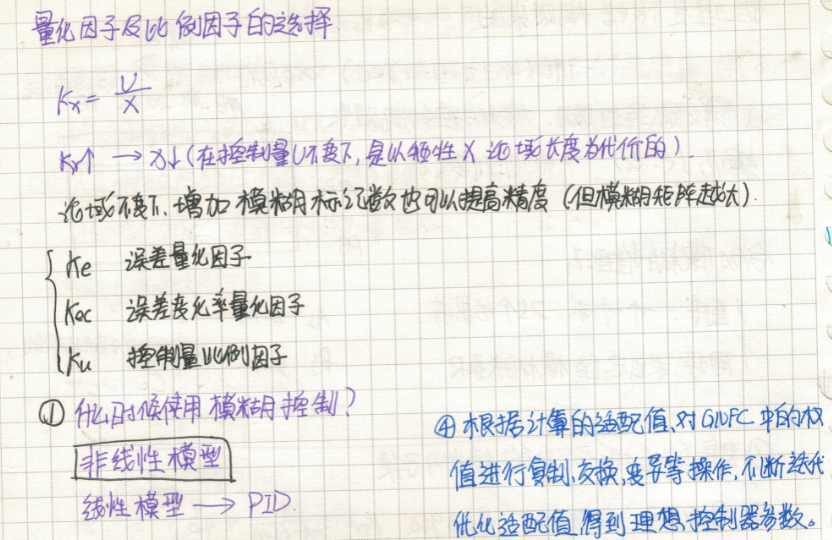 量化因子及比例因子的选择
Kx = U/X
Kx↑ → X↓ (在控制量U不变下,是以牺牲X论域长度为代价的).
论域不变下,增加模糊标记数也可以提高精度(但模糊矩阵越大).
Ke 误差量化因子
Kec 误差变化率量化因子
Ku 控制量比例因子
① 什么时候使用模糊控制?
非线性模型
线性模型 → PID.
④ 根据计算的适配值,对GNFC中的权
值进行复制,交换,变异等操作,不断迭代
优化适配值,得到理想控制器参数。